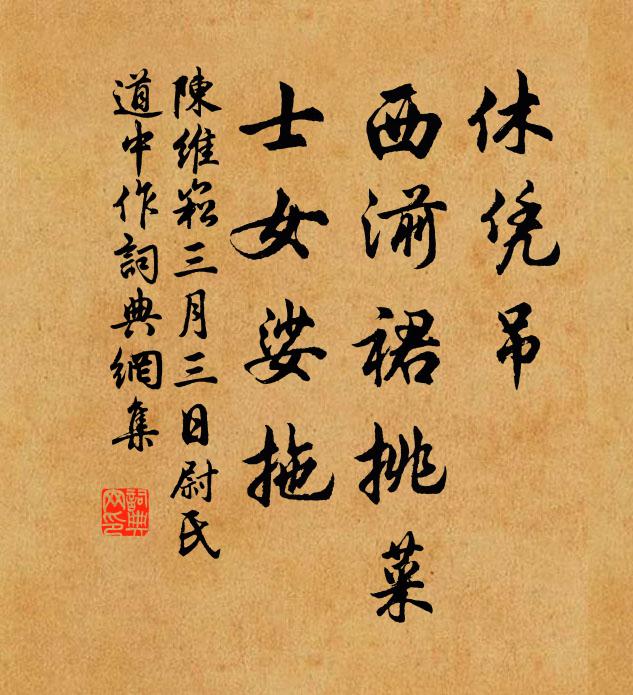 休凭吊
西湔裙挑菜
士女娑拖
陳維崧三月三日尉氏
道中作詞典網集
詞典网印